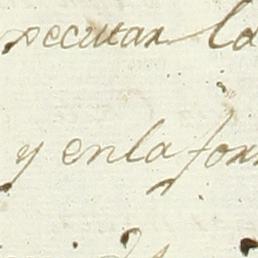 xecutar la
y enla for